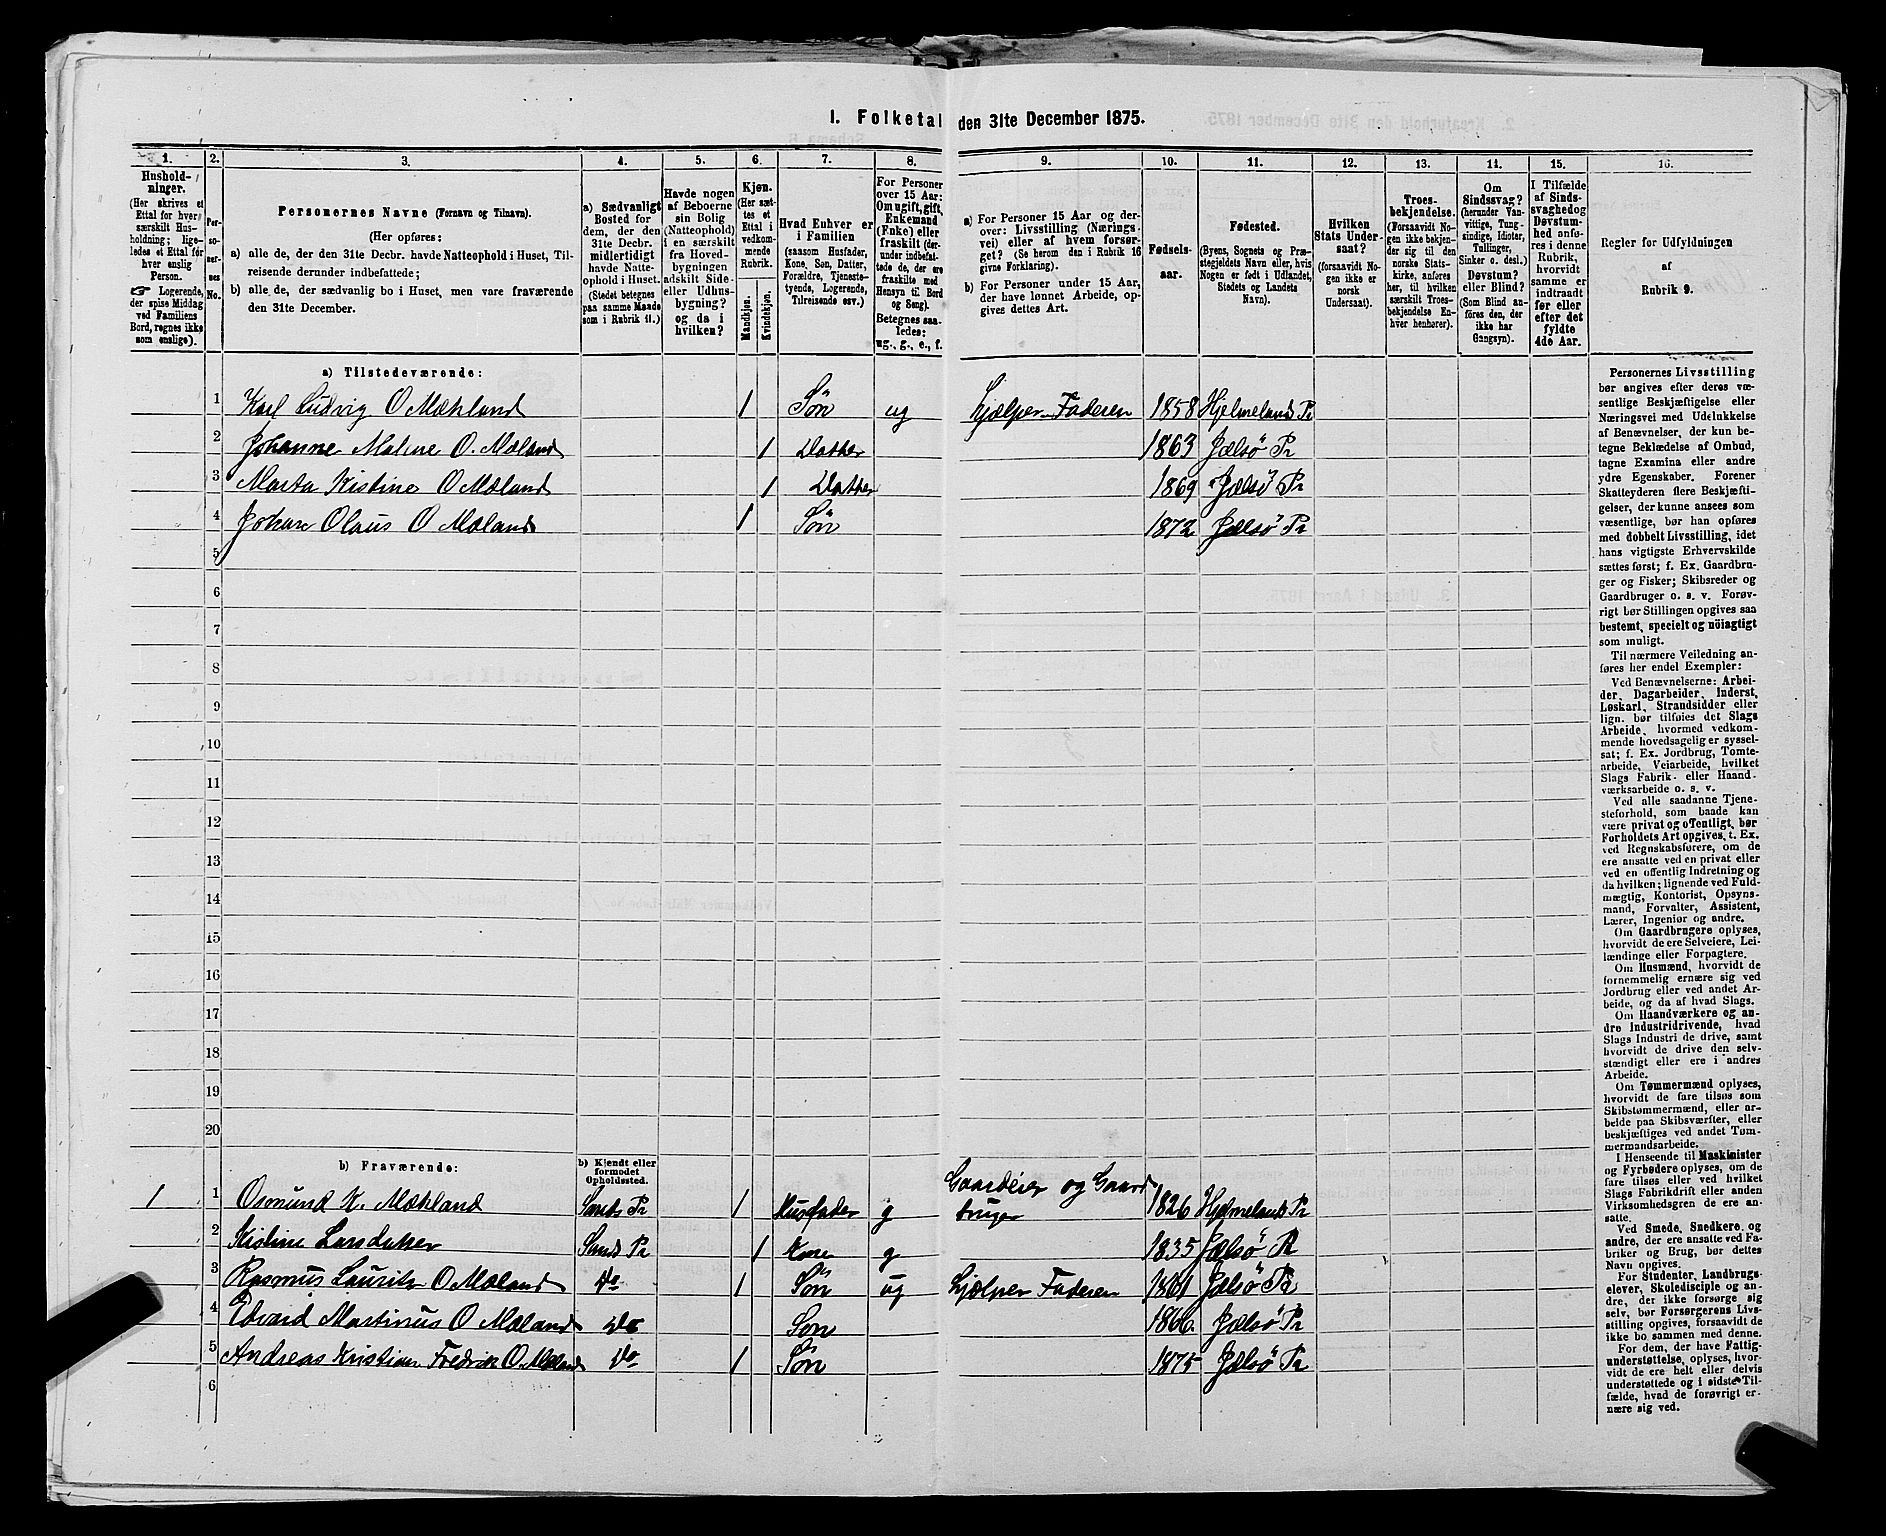 1. Folketal den 31te December 1875.
1. 2. 3. 4. 5. 6. 7. 8. 9. 10. 11. 12. 13. 14. 15. 16.
Hushold-
ninger.
(Her skrives et
Ettal for hver
særskilt Hus-
holdning; lige-
ledes et Ettal for
hver enslig
Person.
☞ Logerende,
der spise Middag
ved Familiens
Bord, regnes ikke
som enslige).
Per-
so-
ner-
nes
No.
Personernes Navne (Fornavn og Tilnavn).
(Her opføres:
a) alle de, der den 31te Decbr. havde Natteophold i Huset, Til-
reisende derunder indbefattede;
b) alle de, der sædvanlig bo i Huset, men vare fraværende
den 31te December.
a) Sædvanligt
Bosted for
dem, der den
31te Decbr.
midlertidigt
havde Natte-
ophold i Huset.
(Stedet betegnes
paa samme Maade
som i Rubrik 11.)
Havde nogen
af Beboerne
sin Bolig
(Natteophold)
i en særskilt
fra Hoved-
bygningen
adskilt Side-
eller Udhus-
bygning?
og da i
hvilken?
Kjøn.
(Her sæt-
tes et
Ettal i
vedkom-
mende
Rubrik.
Mandkjøn.
Kvindekjøn.
Hvad Enhver er
i Familien
(saasom Husfader,
Kone, Søn, Datter,
Forældre, Tjeneste-
tyende, Logerende,
Tilreisende osv.)
For Personer
over 15 Aar:
Om ugift, gift,
Enkemand
(Enke) eller
fraskilt (der-
under indbefat-
tede de, der ere
fraskilte med
Hensyn til Bord
og Seng).
Betegnes saa-
ledes:
ug., g., e., f.
a) For Personer 15 Aar og der-
over: Livsstilling (Nærings-
vei) eller af hvem forsør-
get? (Se herom den i Rubrik 16
givne Forklaring).
b) For Personer under 15 Aar,
der have lønnet Arbeide, op-
gives dettes Art.
Fødsels-
aar.
Fødested.
(Byens, Sognets og Præ-
stegjeldets Navn eller, hvis
Nogen er født i Udlandet,
Stedets og Landets
Navn).
Hvilken
Stats Under-
saat?
(forsaavidt No-
gen ikke er
norsk
Undersaat).
Troes-
bekjendelse.
(Forsaavidt No-
gen ikke bekjen-
der sig til den
norske Stats-
kirke, anføres
her, til hvilken
særskilt Troes-
bekjendelse En-
hver henhører).
Om
Sindssvag?
(herunder Van-
vittige, Tung-
sindige, Idioter,
Tullinger,
Sinker o. desl.)
Døvstum?
eller Blind?
(Som Blind an-
føres den, der
ikke har
Gangsyn).
I Tilfælde
af Sinds-
svaghed og
Døvstum-
hed anfø-
res i denne
Rubrik,
hvorvidt
samme er
indtraadt
før eller
efter det
fyldte
4de Aar.
Regler for Udfyldningen
af
Rubrik 9.
a) Tilstedeværende:
1 Karl Ludvig O Mæhland 1 Søn ug hjælper Faderen 1858 Hjelmeland Pr
2 Johanne Maline O. Mæland 1 Datter 1863 Jælsö Pr
3 Marta Kistine O Mæland 1 Datter 1869 Jælsö Pr
4 Johan Olaus O Mæland 1 Søn 1872 Jælsö Pr
5
6
7
8
9
10
11
12
13
14
15
16
17
18
19
20
b) Fraværende:
b) Kjendt eller
formodet
Opholdssted.
1 1 Osmund K. Mæhland Sands Pr 1 Husfader g Gaardeier og Gaard
bruger 1826 Hjelmeland Pr
2 Kistine Larsdatter Sands Pr 1 Kone g 1835 Jælsö Pr
3 Rasmus Lauritz O Mæland Do 1 Søn ug hjælper Faderen 1861 Jælsö Pr
4 Edvard Martinus O Mæland Do Søn 1866 Jælsö Pr
5 Andreas Kristian Fredrik O Mæland Do 1 Søn 1875 Jælsö Pr
6
Personernes Livsstilling
bør angives efter deres væ-
sentlige Beskjæftigelse eller
Næringsvei med Udelukkelse
af Benævnelser, der kun be-
tegne Beklædelse af Ombud,
tagne Examina eller andre
ydre Egenskaber. Forener
Skatteyderen flere Beskjæfti-
gelser, der kunne ansees som
væsentlige, bør han opføres
med dobbelt Livsstilling, idet
hans vigtigste Erhvervskilde
sættes først; f. Ex. Gaardbru-
ger og Fisker; Skibsreder og
Gaardbruger o. s. v. Forøv-
rigt bør Stillingen opgives saa
bestemt, specielt og nöiagtigt
som muligt.
Til nærmere Veiledning an-
føres her endel Exempler:
Ved Benævnelserne: Arbei-
der, Dagarbeider, Inderst,
Løskarl, Strandsidder eller
lign. bør tilføies det Slags
Arbeide, hvormed vedkom-
mende hovedsagelig er syssel-
sat; f. Ex. Jordbrug, Tomte-
arbeide, Veiarbeide, hvilket
Slags Fabrik- eller Haand-
værksarbeide o. s. v.
Ved alle saadanne Tjene-
steforhold, som baade kan
være privat og offentligt, bør
Forholdets Art opgives, t. Ex.
ved Regnskabsførere, om de
ere ansatte ved en privat eller
ved en offentlig Indretning og
da hvilken; lignende ved Fuld-
mægtig, Kontorist, Opsyns-
mand, Forvalter, Assistent,
Lærer, Ingeniør og andre.
Om Gaardbrugere oplyses,
hvorvidt de ere Selveiere, Lei-
lændinge eller Forpagtere.
Om Husmænd, hvorvidt de
fornemmelig ernære sig ved
Jordbrug eller ved andet Ar-
beide, og da af hvad Slags.
Om Haandværkere og an-
dre Industridrivende, hvad
Slags Industri de drive, samt
hvorvidt de drive den selv-
stændigt eller ere i andres
Arbeide.
Om Tømmermænd oplyses,
hvorvidt de fare tilsøs som
Skibstømmermænd, eller ar-
beide paa Skibsværfter, eller
beskjæftiges ved andet Tøm-
mermandsarbeide.
I Henseende til Maskinister
og Fyrbødere oplyses, om de
fare tilsøs eller ved hvilket
Slags Fabrikdrift eller anden
Virksomhedsgren de ere an-
satte.
Ved Smede, Snedkere og
andre, der ere ansatte ved Fa-
briker og Brug, bør dettes
Navn opgives.
For Studenter, Landbrugs-
elever, Skoledisciple og an-
dre, der ikke forsørge sig
selv, bør Forsørgerens Livs-
stilling opgives, forsaavidt de
ikke bo sammen med denne.
For dem, der have Fattig-
understøttelse, oplyses, hvor-
vidt de ere helt eller delvis
understøttede og i sidste Til-
fælde, hvad de forøvrigt er-
nære sig ved.